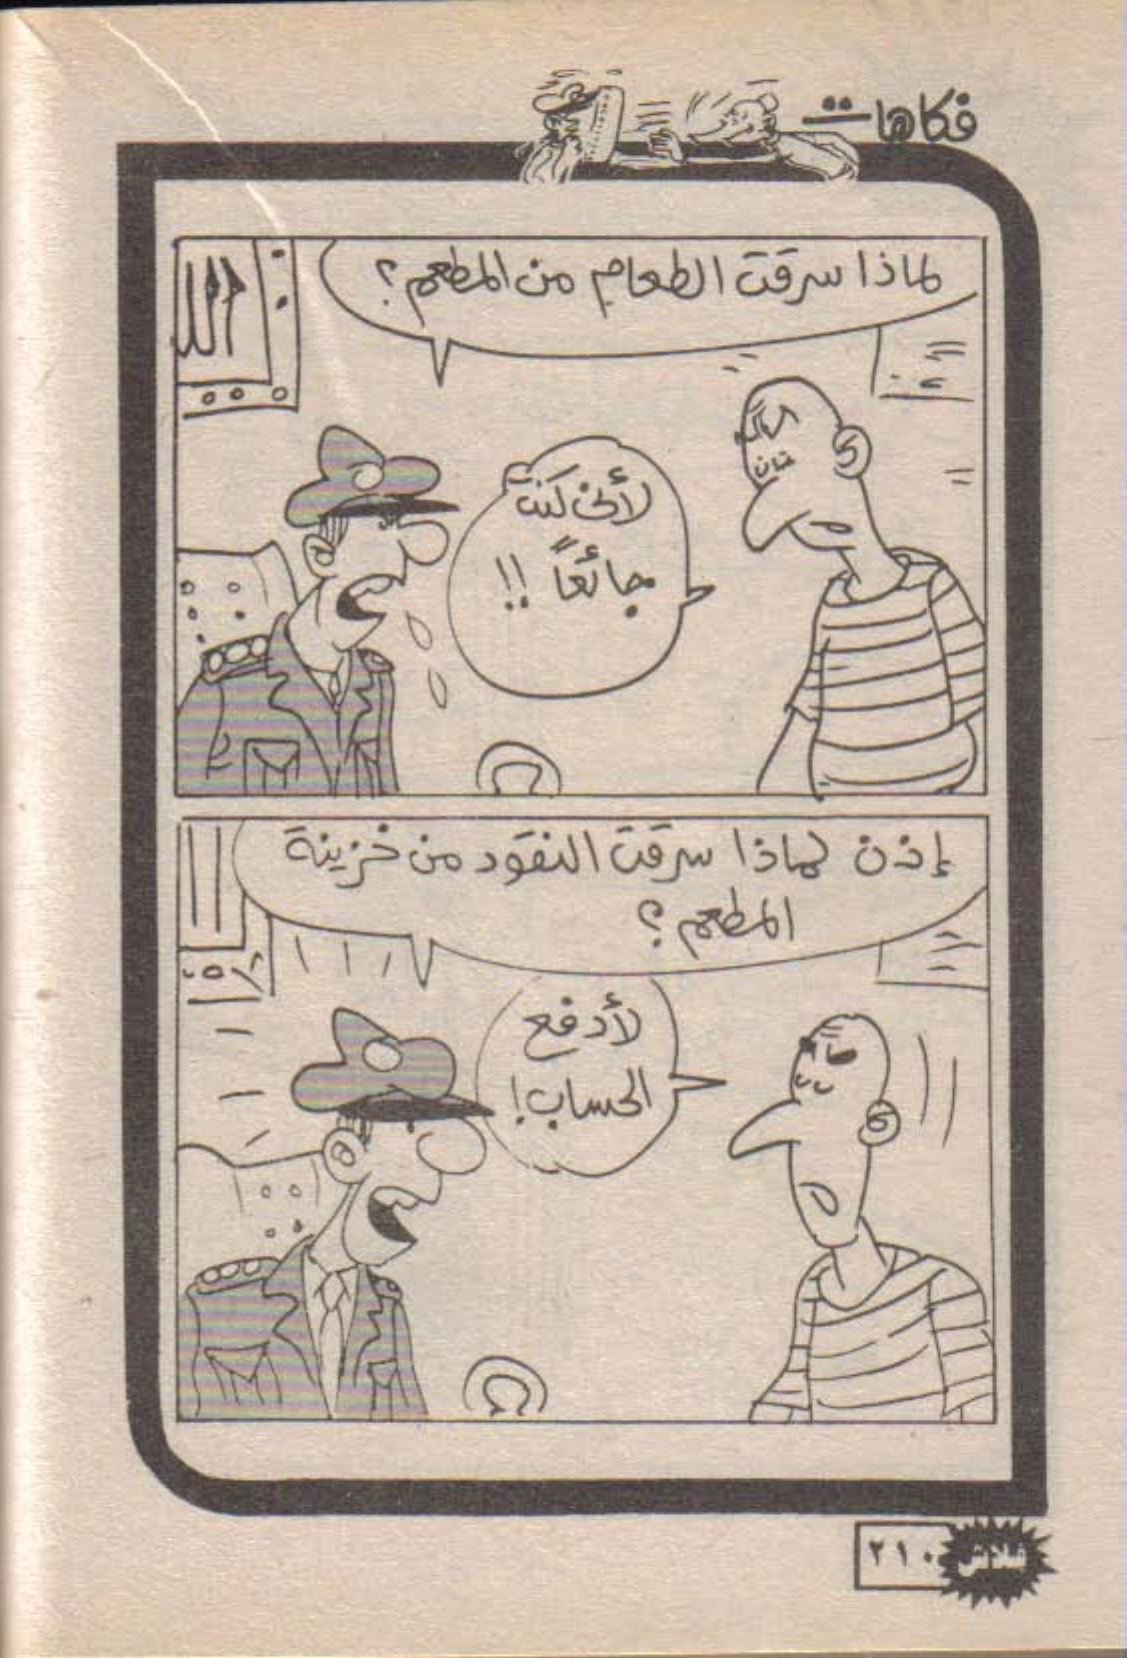 فكاهات
لماذا سرقت الطعام من المطعم؟
الله
لأنى كنت
جائعاً !!
خالد
إذن لماذا سرقت النقود من خزينة
المطعم؟
لأدفع
الحساب!
فلاش
٢١٠